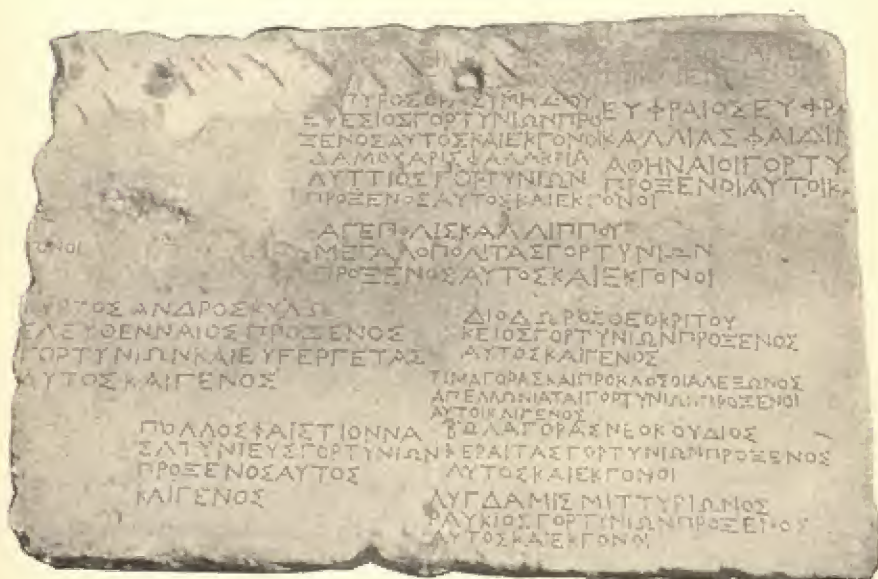 ΠΥΡΟΣ
ΕΦΕΣΙΟΣΓΟΡΤΥΝΙΩΝΠΡΟ
ΞΕΝΟΣΑΥΤΟΣΚΑΙΕΚΓΟΝΟΙ
ΔΑΜΟΧΑΡΙΣΦΑΛΑΚΡΙΑ
ΛΥΤΤΙΟΣΓΟΡΤΥΝΙΩΝ
ΠΡΟΞΕΝΟΣΑΥΤΟΣΚΑΙΕΚΓΟΝΟΙ
ΕΥΦΡΑΙΟΣΕΥΦΡΑ
ΚΑΛΛΙΑΣΦΑΙΔΙΝ
ΑΘΗΝΑΙΟΙΓΟΡΤΥ
ΠΡΟΞΕΝΟΙΑΥΤΟΙΚΑ
ΑΓΕΠΟΛΙΣΚΑΛΛΙΠΠΟΥ
ΜΕΓΑΛΟΠΟΛΙΤΑΣΓΟΡΤΥΝΙΩΝ
ΠΡΟΞΕΝΟΣΑΥΤΟΣΚΑΙΕΚΓΟΝΟΙ
ΓΟΝΟΙ
ΥΡΤΟΣΑΝΔΡΟΣΚΥΛΩ
ΕΛΕΥΘΕΝΝΑΙΟΣΠΡΟΞΕΝΟΣ
ΓΟΡΤΥΝΙΩΝΚΑΙΕΥΕΡΓΕΤΑΣ
ΑΥΤΟΣΚΑΙΓΕΝΟΣ
ΔΙΟΔΩΡΟΣΘΕΟΚΡΙΤΟΥ
ΚΕΙΟΣΓΟΡΤΥΝΙΩΝΠΡΟΞΕΝΟΣ
ΑΥΤΟΣΚΑΙΓΕΝΟΣ
ΤΙΜΑΓΟΡΑΣΚΑΙΠΡΟΚΛΟΣΟΙΑΛΕΞΩΝΟΣ
ΑΠΕΛΛΩΝΙΑΤΑΙΓΟΡΤΥΝΙΩΝΠΡΟΞΕΝΟΙ
ΑΥΤΟΙΚΑΙΓΕΝΟΣ
ΠΥΛΛΟΣΦΑΙΣΤΙΟΝΝΑ
ΣΛΤΥΝΙΕΥΣΓΟΡΤΥΝΙΩΝ
ΠΡΟΞΕΝΟΣΑΥΤΟΣ
ΚΑΙΓΕΝΟΣ
ΒΩΛΑΓΟΡΑΣΝΕΟΚΟΥΔΙΟΣ
ΚΕΡΑΙΤΑΣΓΟΡΤΥΝΙΩΝΠΡΟΞΕΝΟΣ
ΑΥΤΟΣΚΑΙΕΚΓΟΝΟΙ
ΛΥΓΔΑΜΙΣΜΙΤΤΥΡΙΩΝΟΣ
ΡΑΥΚΙΟΣΓΟΡΤΥΝΙΩΝΠΡΟΞΕΝΟΣ
ΑΥΤΟΣΚΑΙΕΚΓΟΝΟΙ